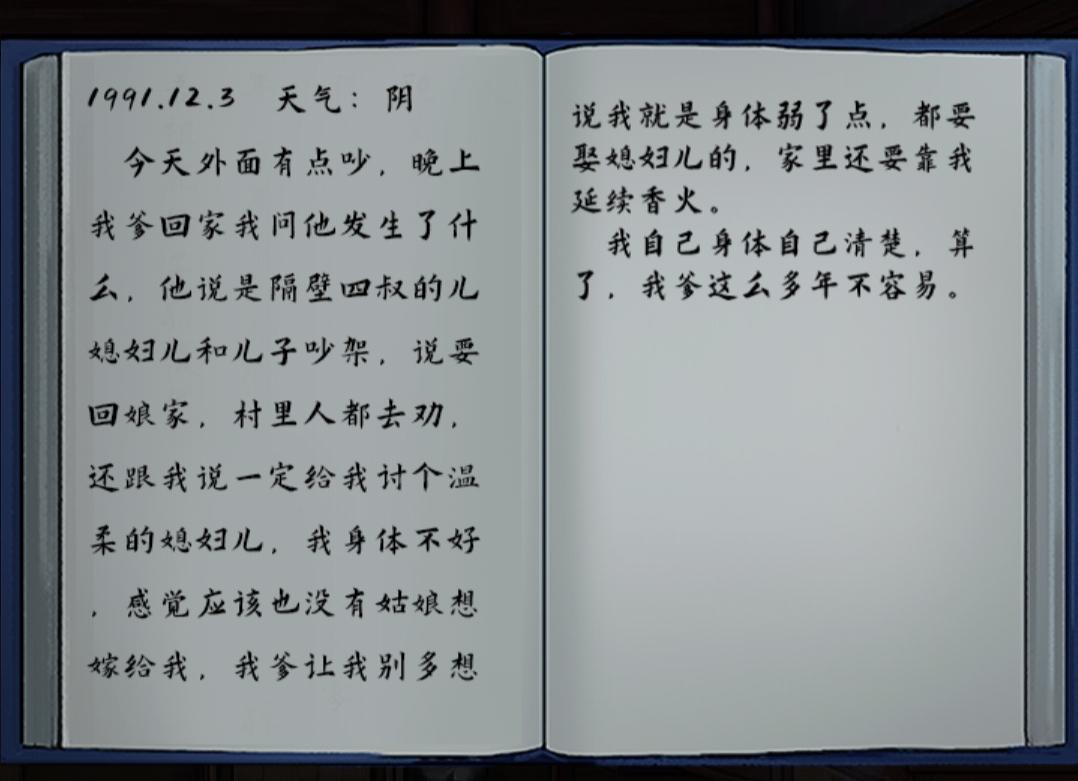 1991.12.3 天气：阴
今天外面有点吵，晚上
我爹回家我问他发生了什
么，他说是隔壁四叔的儿
媳妇儿和儿子吵架，说要
回娘家，村里人都去劝，
还跟我说一定给我讨个温
柔的媳妇儿，我身体不好
，感觉应该也没有姑娘想
嫁给我，我爹让我别多想
说我就是身体弱了点，都要
娶媳妇儿的，家里还要靠我
延续香火。
我自己身体自己清楚，算
了，我爹这么多年不容易。